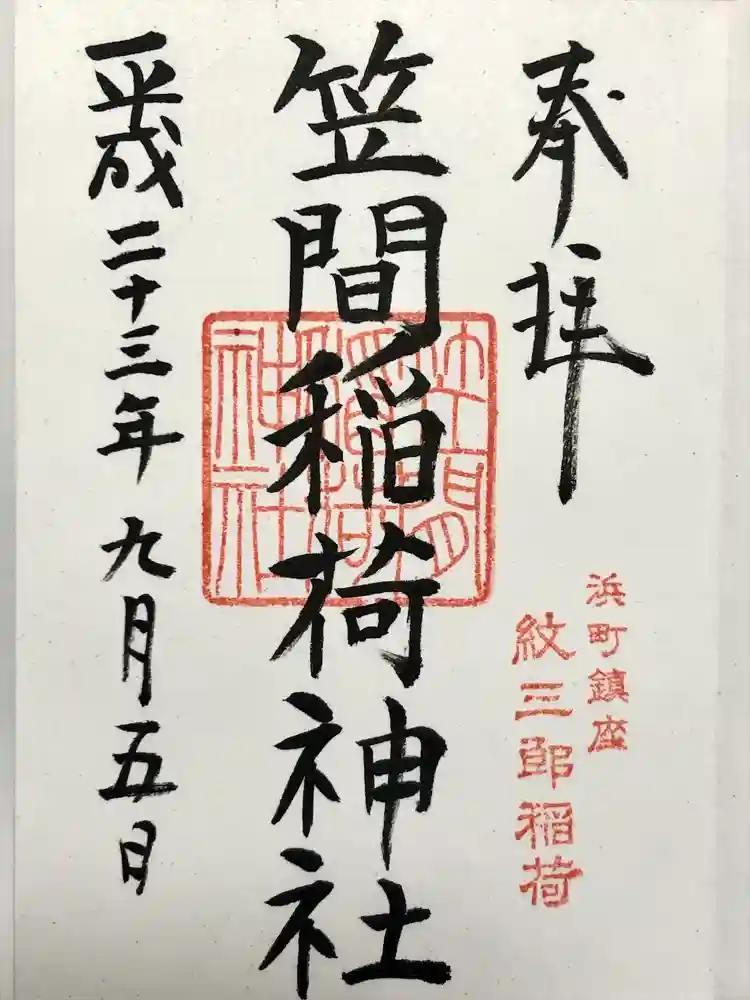 奉拝
浜町鎮座
紋三郎稲荷
笠間稲荷神社
笠間
稲荷
神社
平成二十三年九月五日